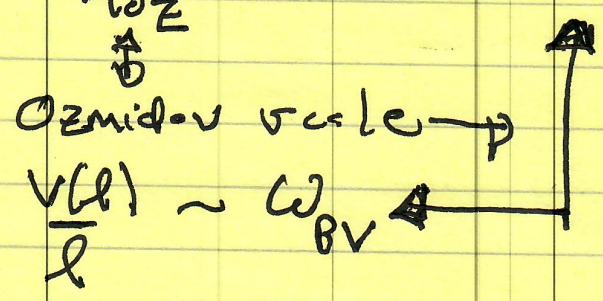 Ozmidov scale →
V(l)/l ~ ω_BV